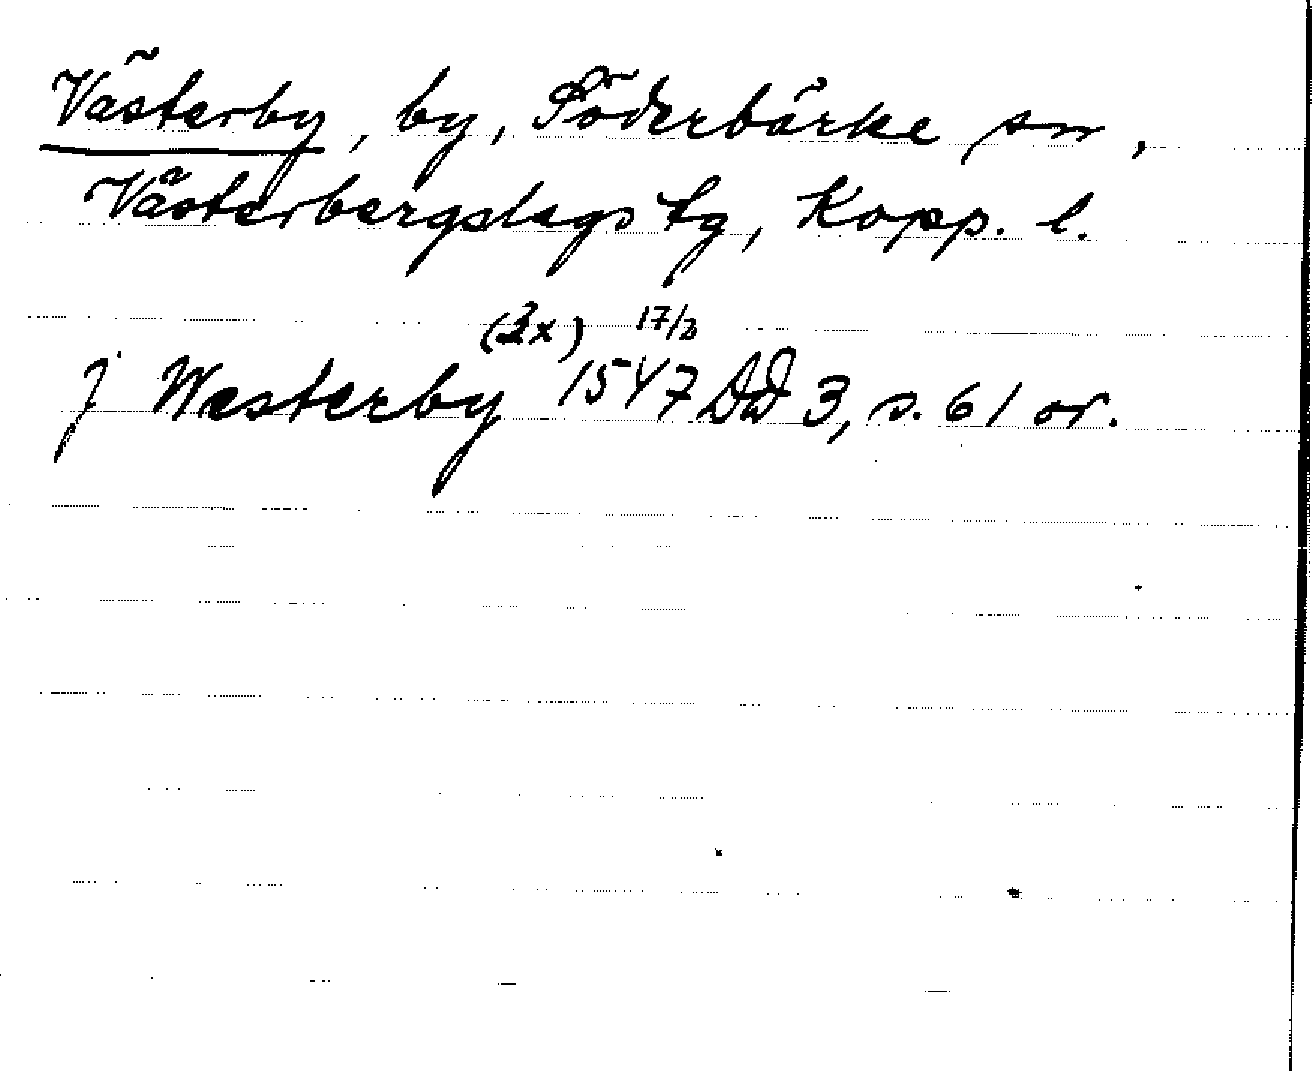 Västerby, by, Söderbärke sn,
Västerbergslags tg, Kopp. l.
(3x) 17/3
j Westerby 1547 DD 3, s. 61 or.